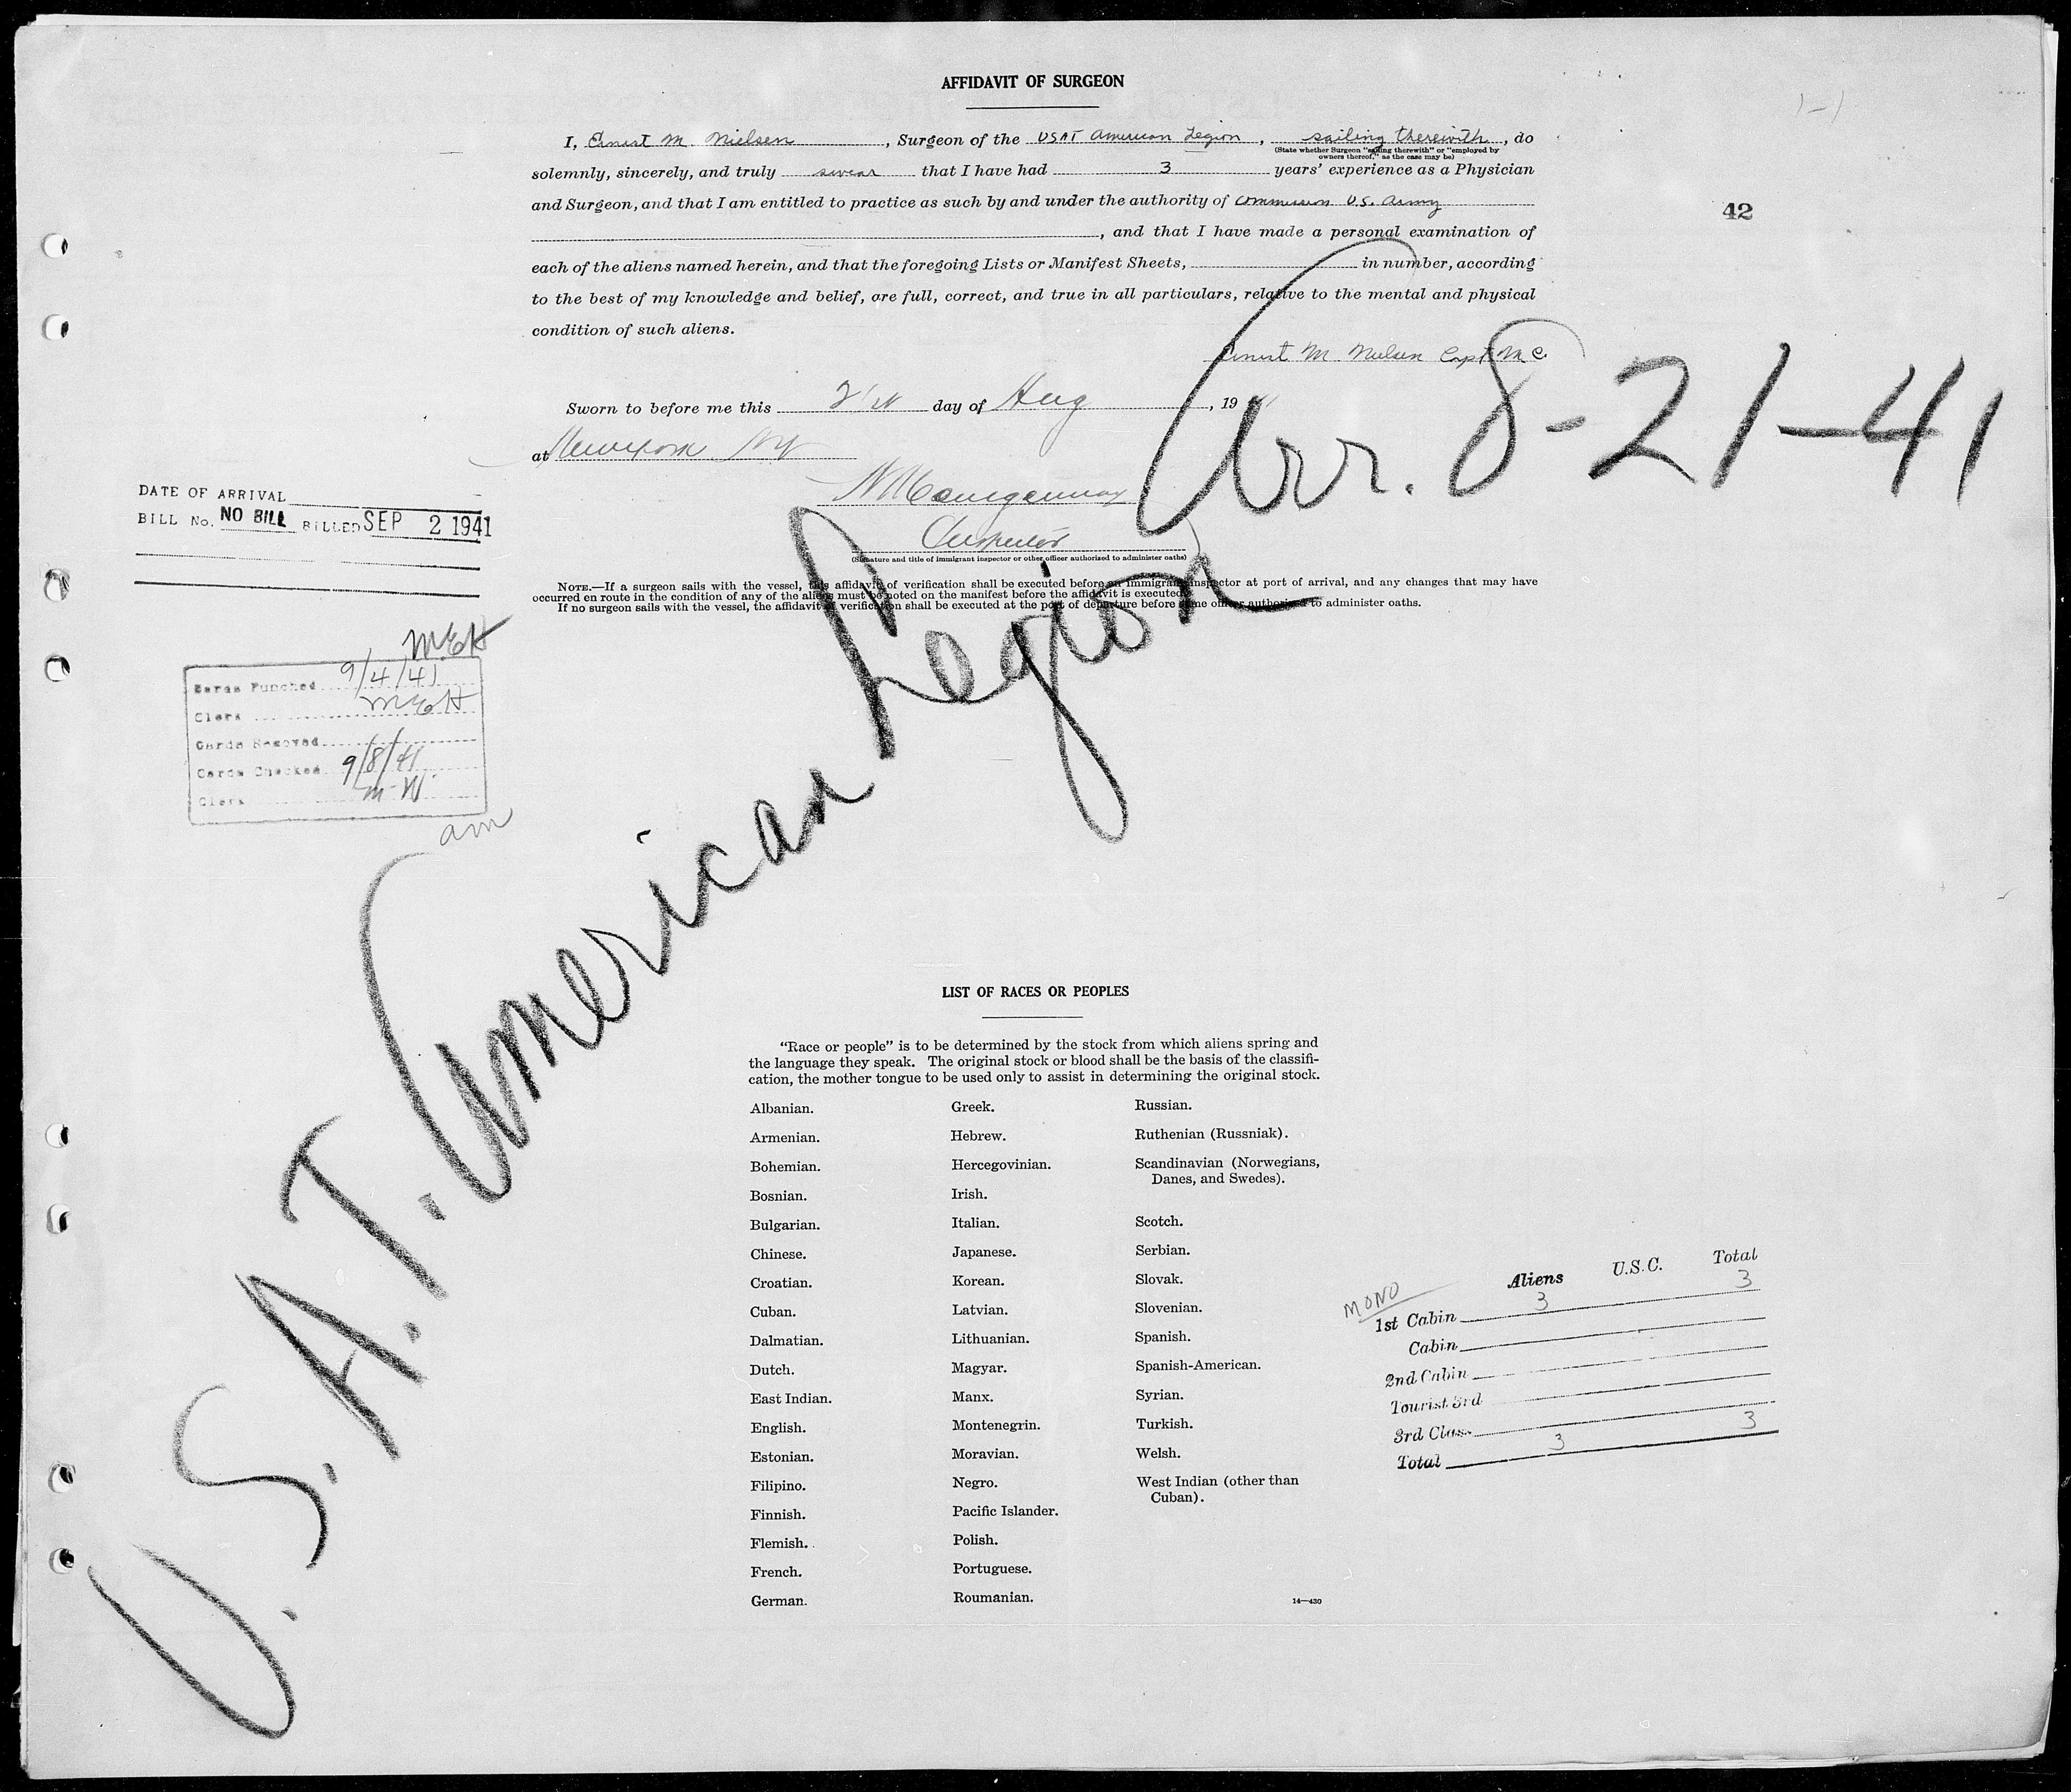 AFFIDAVIT OF SURGEON
1-1
I, Ernest M. Nielsen, Surgeon of the USAT American Legion, sailing therewith, do
(State whether Surgeon "sailing therewith" or "employed by
owners thereof," as the case may be)
solemnly, sincerely, and truly swear that I have had 3 years' experience as a Physician
and Surgeon, and that I am entitled to practice as such by and under the authority of commission U.S. Army
42
, and that I have made a personal examination of
each of the aliens named herein, and that the foregoing Lists or Manifest Sheets, in number, according
to the best of my knowledge and belief, are full, correct, and true in all particulars, relative to the mental and physical
condition of such aliens.
Ernest M. Nielsen Capt M C.
Sworn to before me this 21st day of Aug, 1941
at New York NY
Arr. 8-21-41
Inspector
(Signature and title of immigrant inspector or other officer authorized to administer oaths)
DATE OF ARRIVAL
BILL No. NO BILL BILLED SEP 2 1941
NOTE.—If a surgeon sails with the vessel, this affidavit of verification shall be executed before an immigrant inspector at port of arrival, and any changes that may have
occurred en route in the condition of any of the aliens must be noted on the manifest before the affidavit is executed.
If no surgeon sails with the vessel, the affidavit of verification shall be executed at the port of departure before some officer authorized to administer oaths.
MEH
Cards Punched 9/4/41
Clerk MEH
Cards Removed
Cards Checked 9/8/41
Clerk M-W.
am
U.S.A.T. American Legion
LIST OF RACES OR PEOPLES
"Race or people" is to be determined by the stock from which aliens spring and
the language they speak. The original stock or blood shall be the basis of the classifi-
cation, the mother tongue to be used only to assist in determining the original stock.
Albanian.
Armenian.
Bohemian.
Bosnian.
Bulgarian.
Chinese.
Croatian.
Cuban.
Dalmatian.
Dutch.
East Indian.
English.
Estonian.
Filipino.
Finnish.
Flemish.
French.
German.
Greek.
Hebrew.
Hercegovinian.
Irish.
Italian.
Japanese.
Korean.
Latvian.
Lithuanian.
Magyar.
Manx.
Montenegrin.
Moravian.
Negro.
Pacific Islander.
Polish.
Portuguese.
Roumanian.
Russian.
Ruthenian (Russniak).
Scandinavian (Norwegians,
Danes, and Swedes).
Scotch.
Serbian.
Slovak.
Slovenian.
Spanish.
Spanish-American.
Syrian.
Turkish.
Welsh.
West Indian (other than
Cuban).
14—430
MONO
Aliens U.S.C. Total
1st Cabin 3 3
Cabin
2nd Cabin
Tourist 3rd
3rd Class
Total 3 3